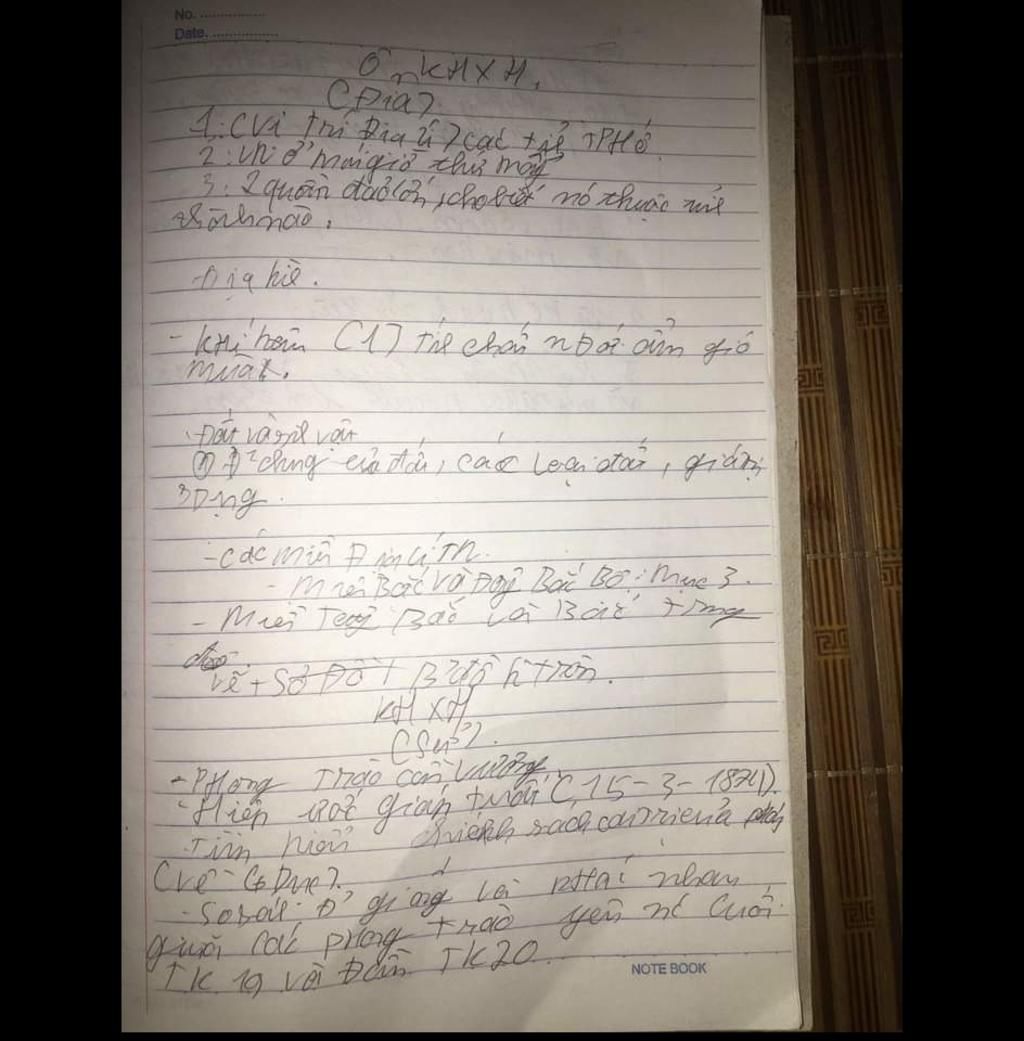 No.
Date.
Ôn KHXH.
(Địa)
1: (Vị Trí Địa lí) các tỉ TPHố
2: VN ở múi giờ thứ mấy
3: 2 quần đảo lớn, cho biết nó thuộc
nào.
- Địa hì.
- KHí hậu (1) Tí chất nĐới ẩm gió
mùa.
- Đất và vật
① Đ² chung của đất, các loại đất, giá trị
sDụng.
- các miền Địa lí TN.
- miền Bắc và Bắc Bộ: Mục 3.
- Miền Tây Bắc và Bắc Trung
Vẽ + Sơ Đồ + B đồ h tròn.
KHXH
(Sử).
- PHong Trào cần Vương
- Hiệp ước giáp tuất (15-3-1874).
- Tìm hiểu sách của pháp
(Về G Dục).
- So sát: Đ² giống và kHác nhau
giữa các pHong trào yêu nc cuối
TK 19 và Đầu TK20.
NOTE BOOK